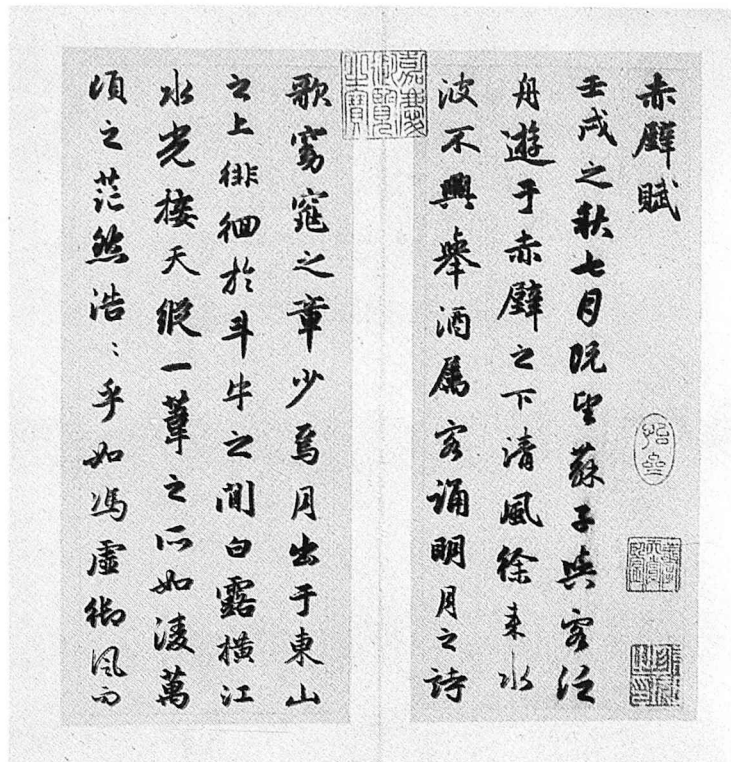 赤壁賦
壬戌之秋七月既望蘇子與客泛
舟遊于赤壁之下清風徐来水
波不興舉酒屬客誦明月之詩
嘉慶御覽之寶
歌窈窕之章少焉月出于東山
之上徘徊於斗牛之間白露橫江
水光接天縱一葦之所如淩萬
頃之茫然浩〻乎如馮虛御風而